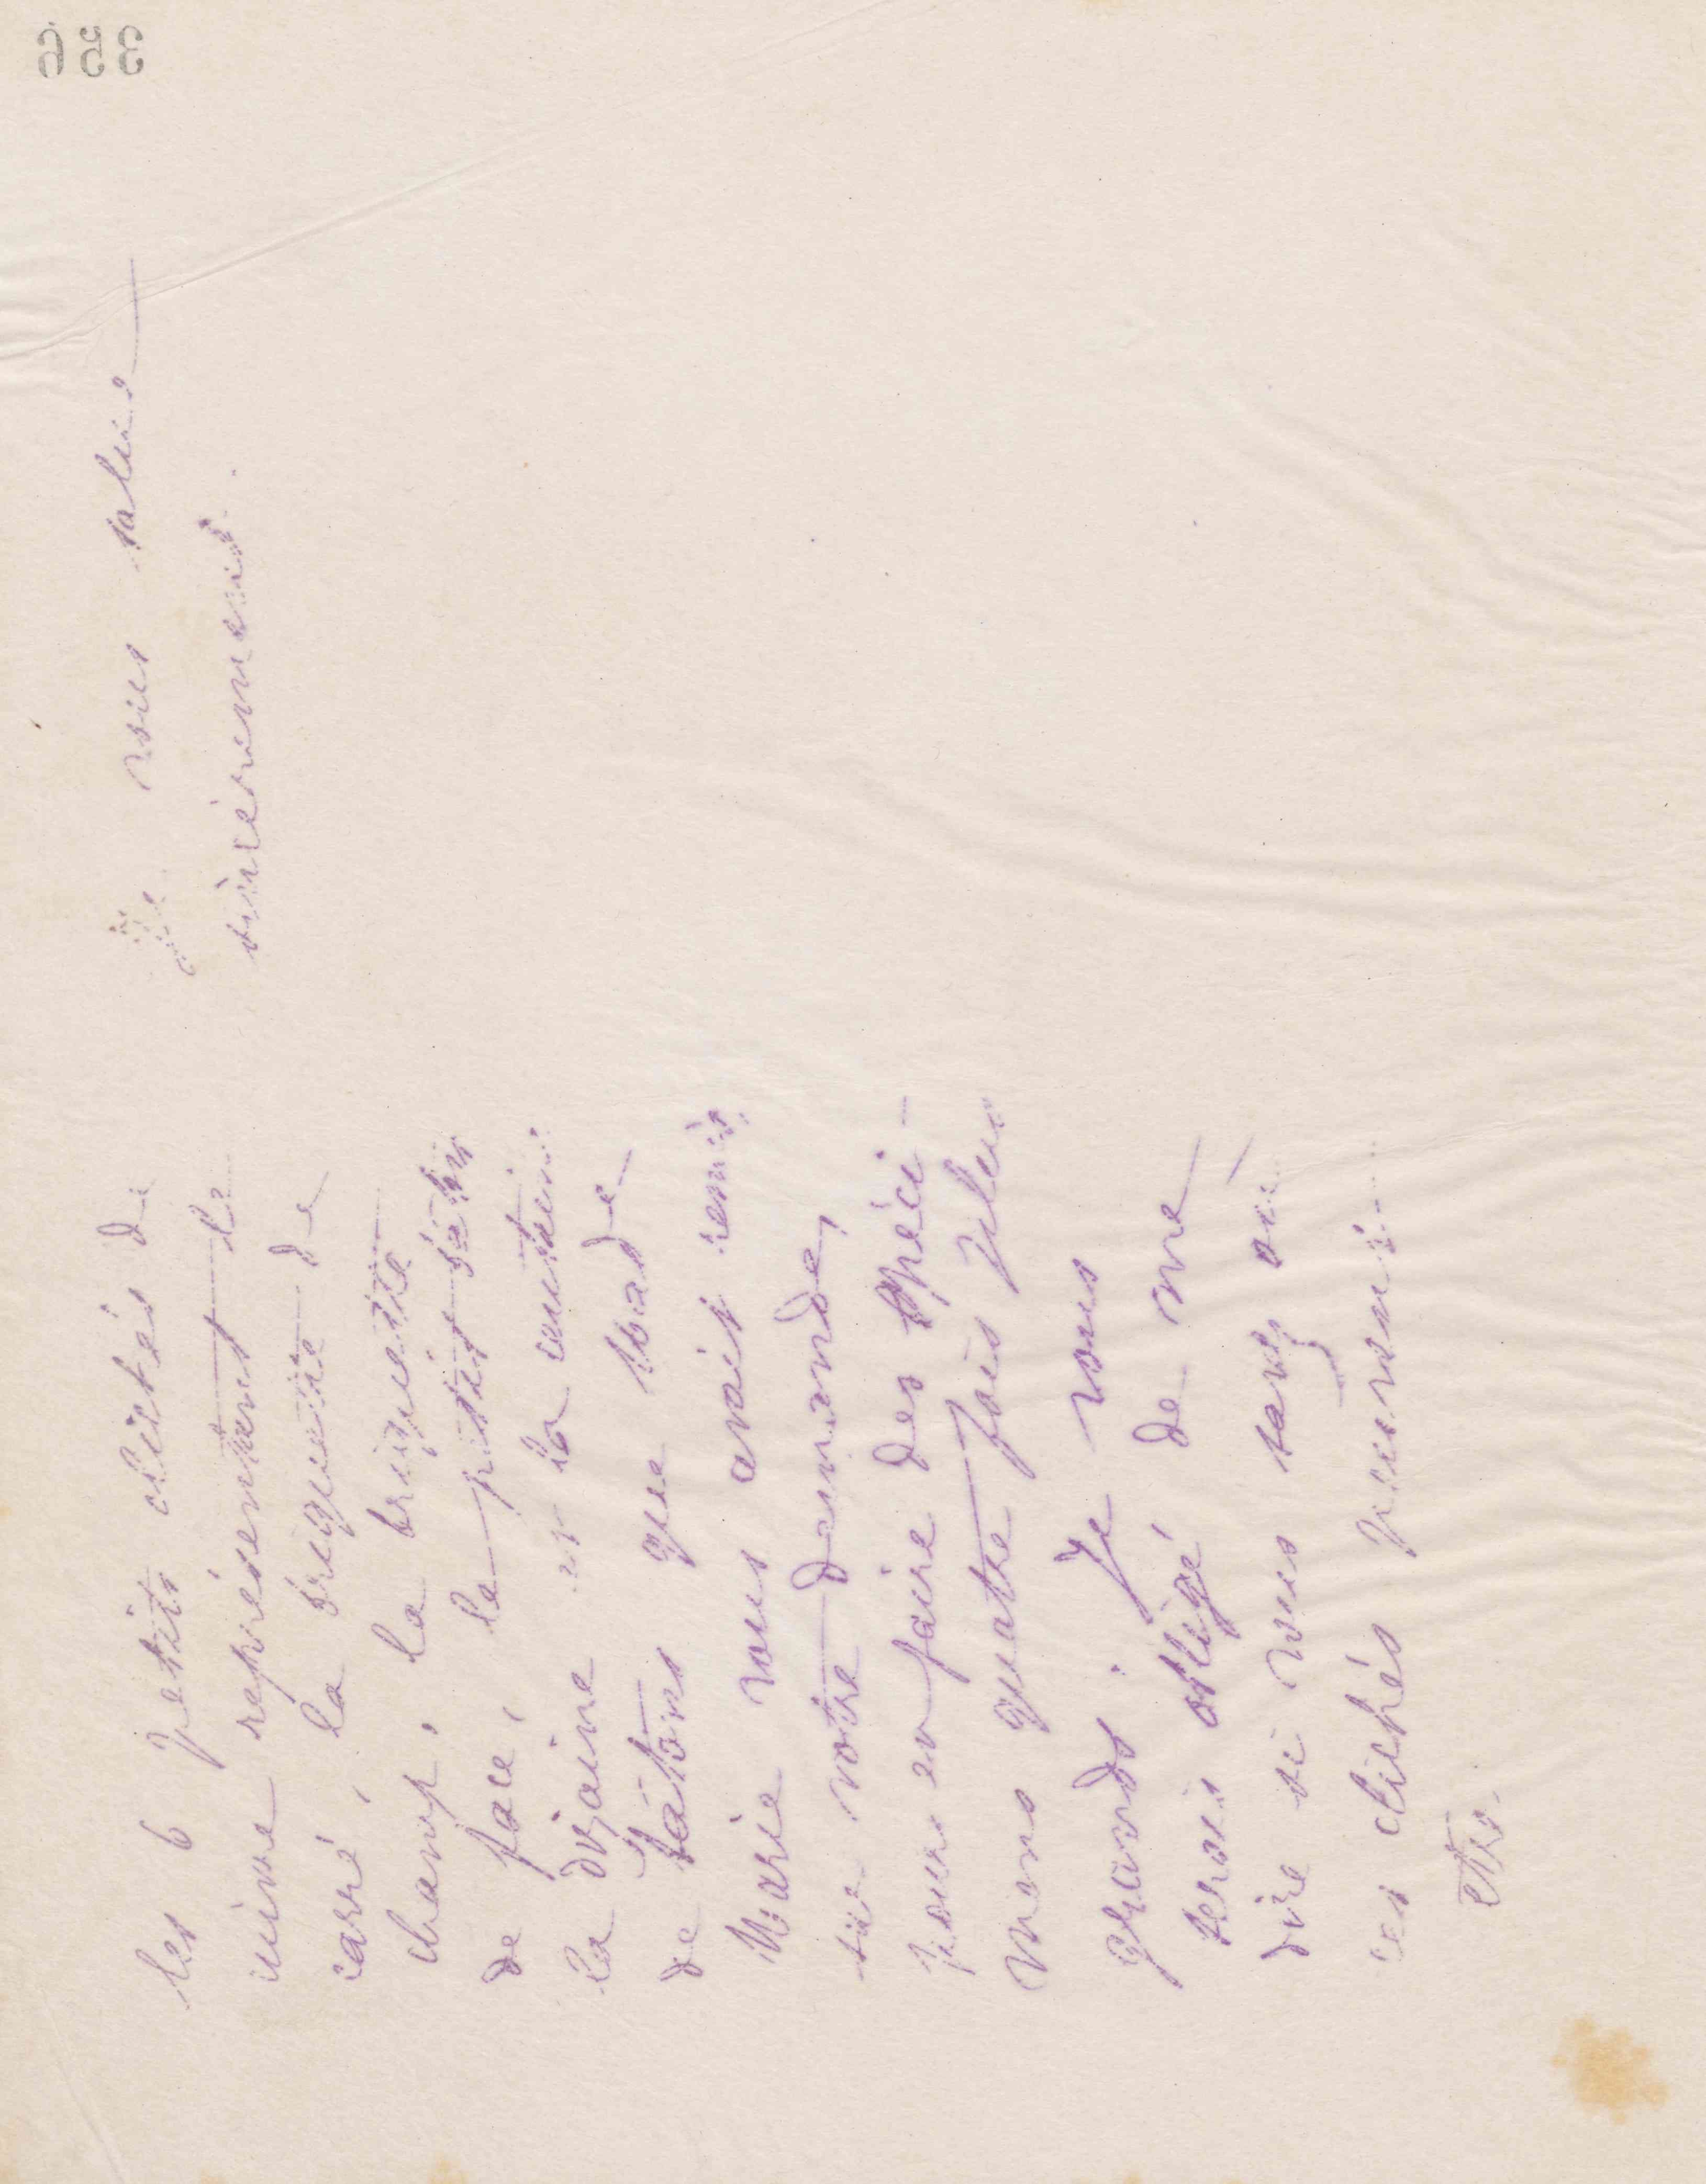 356
les 6 petits clichés de
cuivre représentant le
carré, la briquette de
champ, la briquette
de face, le petit bâton
la dizaine et la centaine
de bâtons que Made
Marie vous avait remis
sur votre demande,
pour en faire des spéci-
mens quatre fois plus
grands. Je vous
serais obligé de me
dire si vous savez où
ces clichés peuvent
être.
Je vous salue
sincèrement.